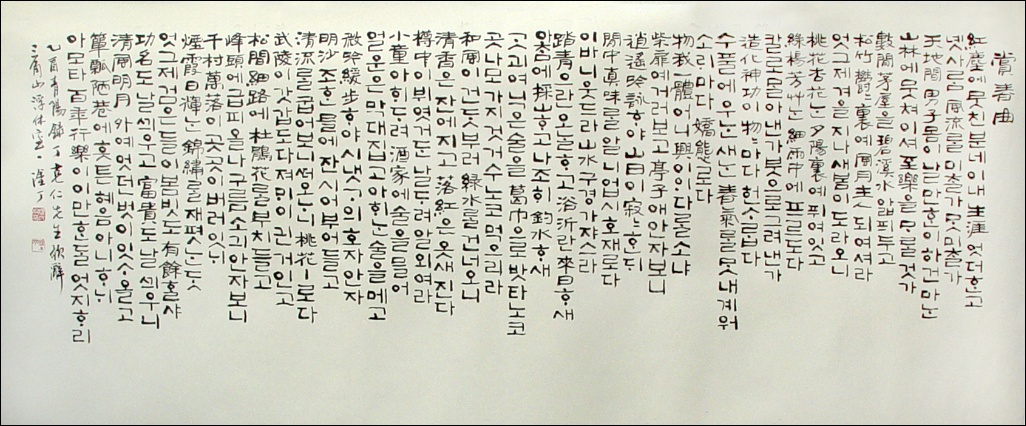 賞春曲
紅塵에뭇친분네이내生涯엇더ᄒᆞᆫ고
녯사ᄅᆞᆷ風流ᄅᆞᆯ미ᄎᆞᆯ가못미ᄎᆞᆯ가
天地間男子몸이날만ᄒᆞᆫ이하건만ᄂᆞᆫ
山林에뭇쳐이셔至樂을ᄆᆞᄅᆞᆯ것가
數間茅屋을碧溪水앏픠두고
松竹鬱鬱裏예風月主人되여셔라
엇그제겨을지나새봄이도라오니
桃花杏花ᄂᆞᆫ夕陽裏예퓌여잇고
綠楊芳艸ᄂᆞᆫ細雨中에프르도다
칼로ᄆᆞᆯ아낸가붓으로그려낸가
造化神功이物物마다헌ᄉᆞ롭다
수풀에우ᄂᆞᆫ새ᄂᆞᆫ春氣ᄅᆞᆯᄆᆞᆺ내계워
소ᄅᆡ마다嬌態로다
物我一體어니興이ᄋᆡ다ᄅᆞᆯ소냐
柴扉예거러보고亭子애안자보니
逍遙吟詠ᄒᆞ야山日이寂寂ᄒᆞᆫᄃᆡ
閒中眞味ᄅᆞᆯ알니업시호재로다
이바니웃드라山水구경가쟈스라
踏靑으란오ᄂᆞᆯᄒᆞ고浴沂란來日ᄒᆞ새
아ᄎᆞᆷ에採山ᄒᆞ고나조ᄒᆡ釣水ᄒᆞ새
ᄀᆞᆺ괴여닉은술을葛巾으로밧타노코
곳나모가지것거수노코먹으리라
和風이건ᄃᆞᆺ부러綠水ᄅᆞᆯ건너오니
淸香은잔에지고落紅은옷새진다
樽中이뷔엿거ᄃᆞᆫ날ᄃᆞ려알외여라
小童아ᄒᆡᄃᆞ려酒家에술을믈어
얼운은막대집고아ᄒᆡᄂᆞᆫ술을메고
微吟緩步ᄒᆞ야시냇ᄀᆞ의호자안자
明沙조ᄒᆞᆫ믈에잔시어부어들고
淸流ᄅᆞᆯ굽어보니ᄯᅥ오ᄂᆞ니桃花ㅣ로다
武陵이갓갑도다져ᄆᆡ이긘거인고
松間細路에杜鵑花ᄅᆞᆯ부치들고
峰頭에급피올나구름소긔안자보니
千村萬落이곳곳이버러잇ᄂᆡ
煙霞日輝ᄂᆞᆫ錦繡ᄅᆞᆯ재폇ᄂᆞᆫᄃᆞᆺ
엇그제검은들이봄빗도有餘ᄒᆞᆯ샤
功名도날ᄭᅴ우고富貴도날ᄭᅴ우니
淸風明月外예엇더벗이잇ᄉᆞ올고
簞瓢陋巷에훗튼혜음아니ᄒᆞᄂᆡ
아모타百年行樂이이만ᄒᆞᆫᄃᆞᆯ엇지ᄒᆞ리
乙酉靑陽節丁克仁先生歌辭